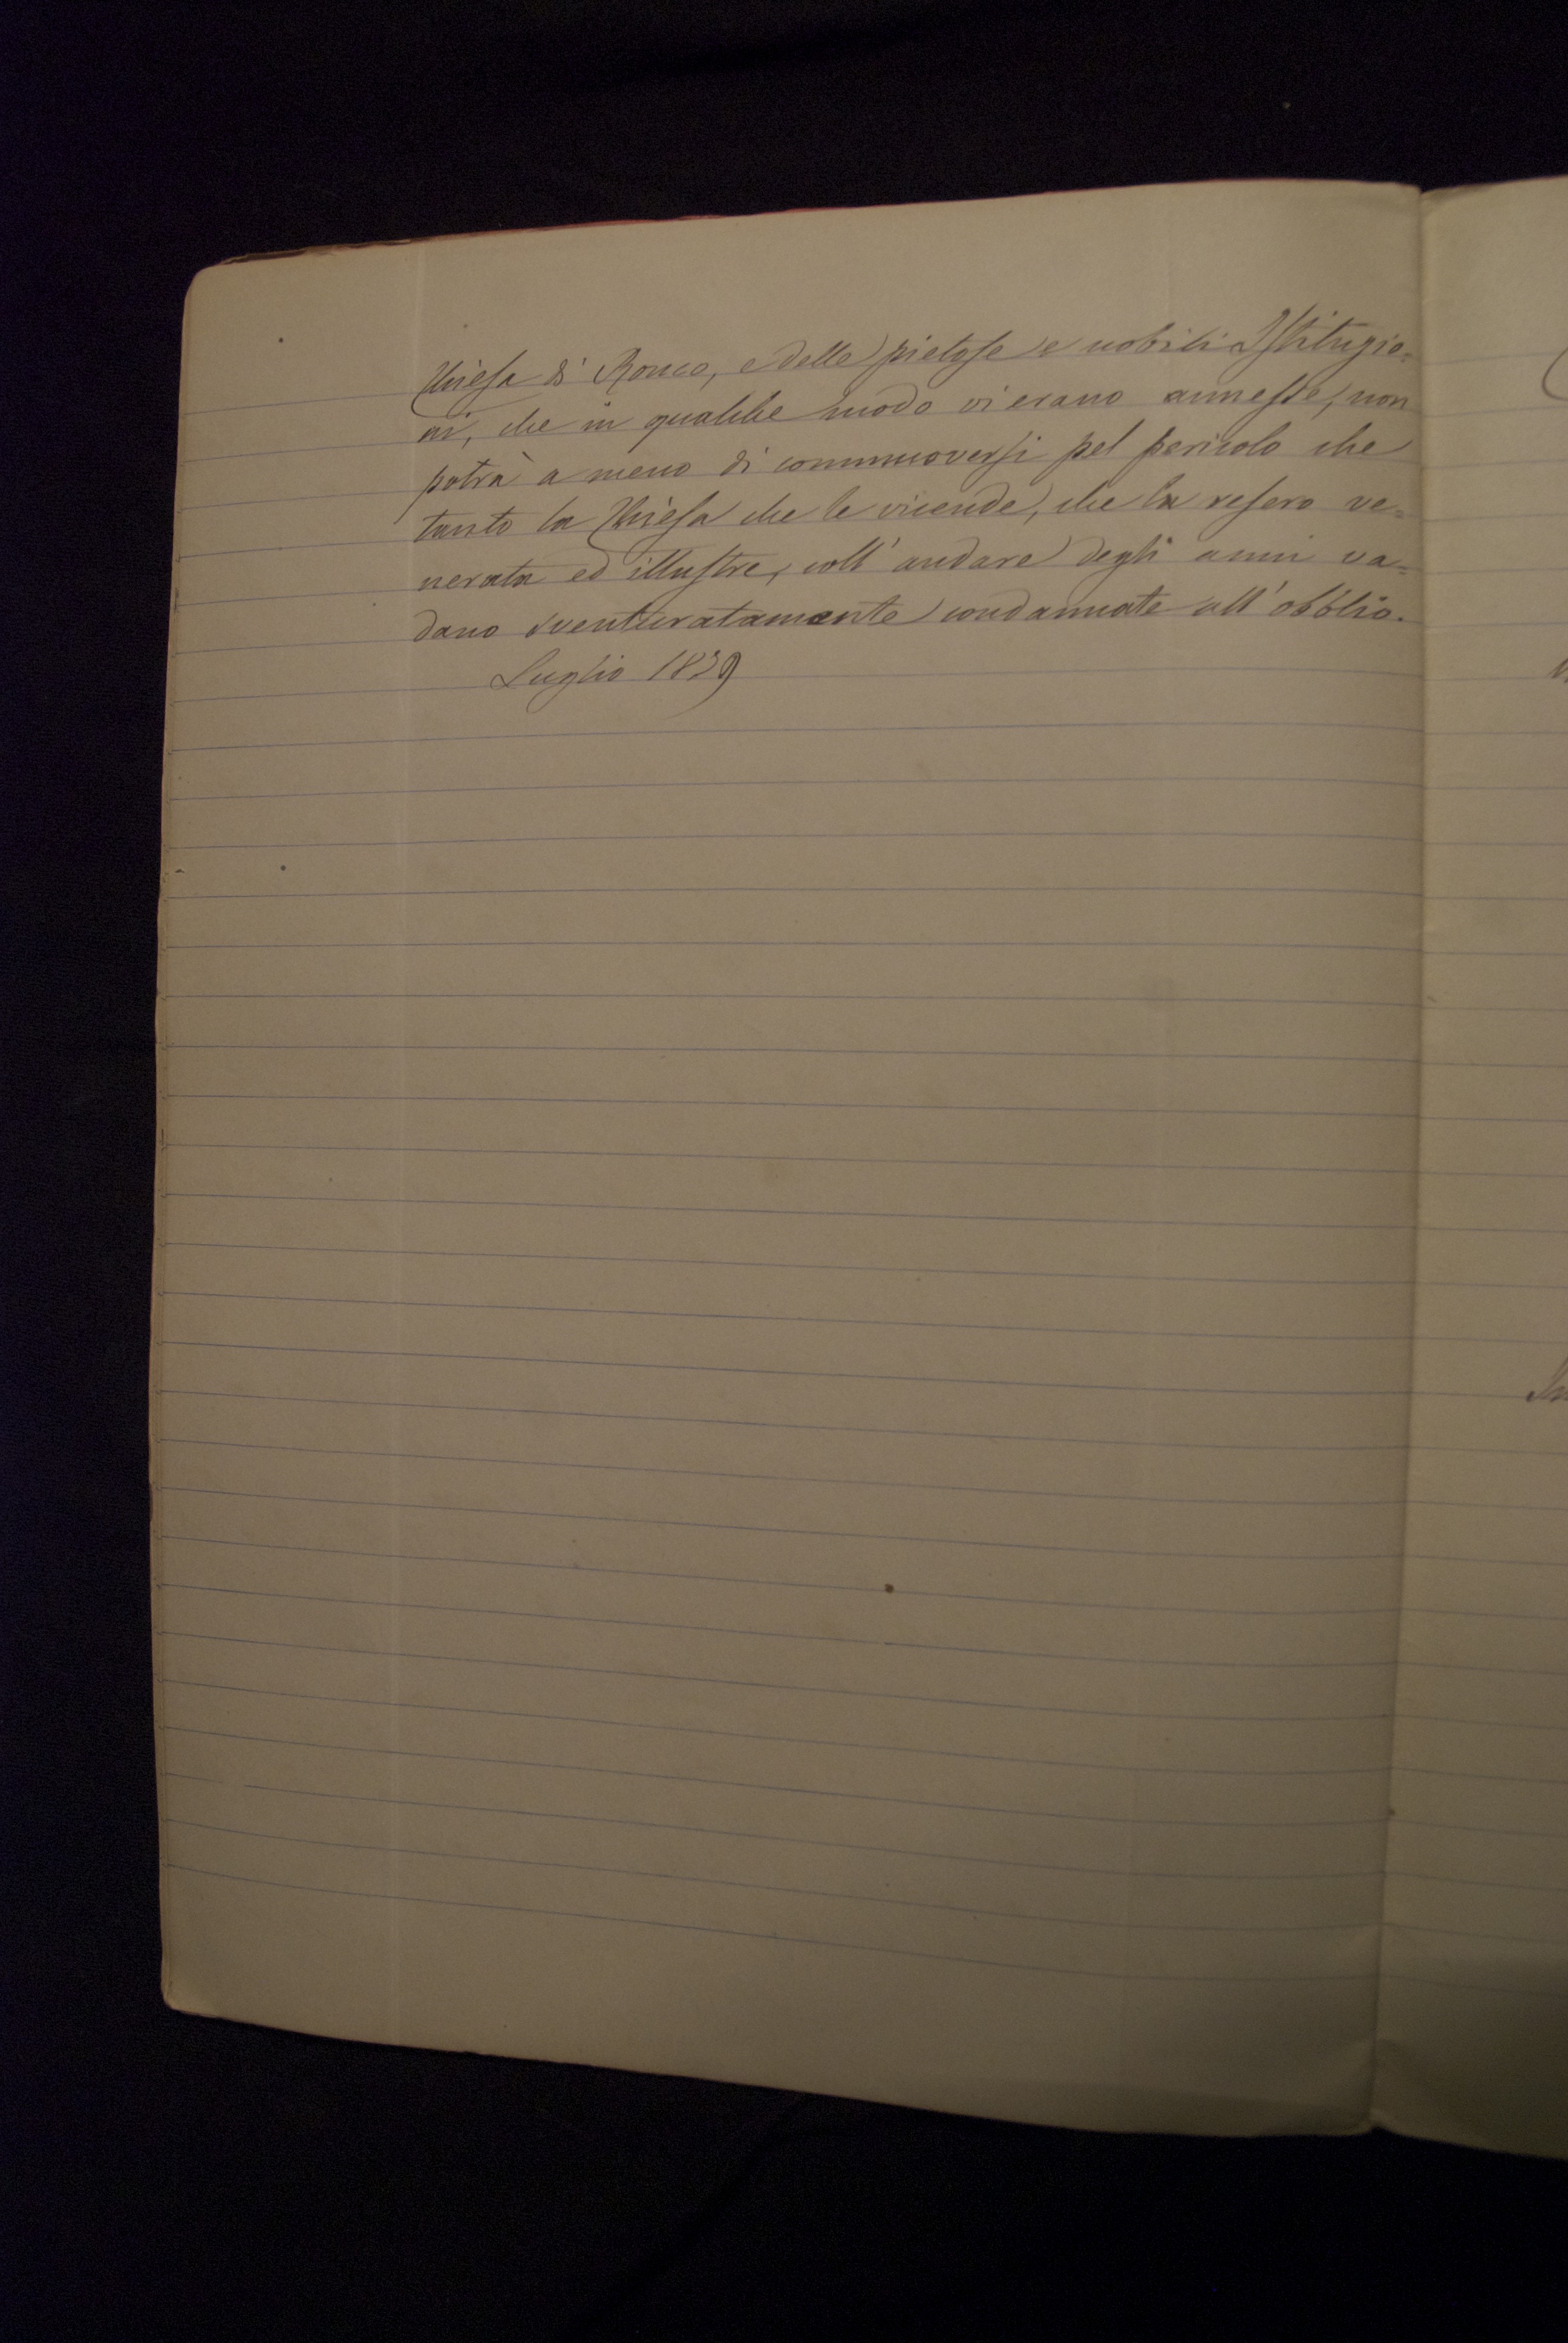 Chiesa di Ronco, e delle pietose e nobili Istituzio=
ni, che in qualche modo vi erano annesse, non
potrà a meno di commuoversi pel pericolo che
tanto la Chiesa che le vicende, che la resero ve=
nerata ed illustre, coll' andare degli anni va=
dano sventuratamente condannate all' obblio.
Luglio 1839